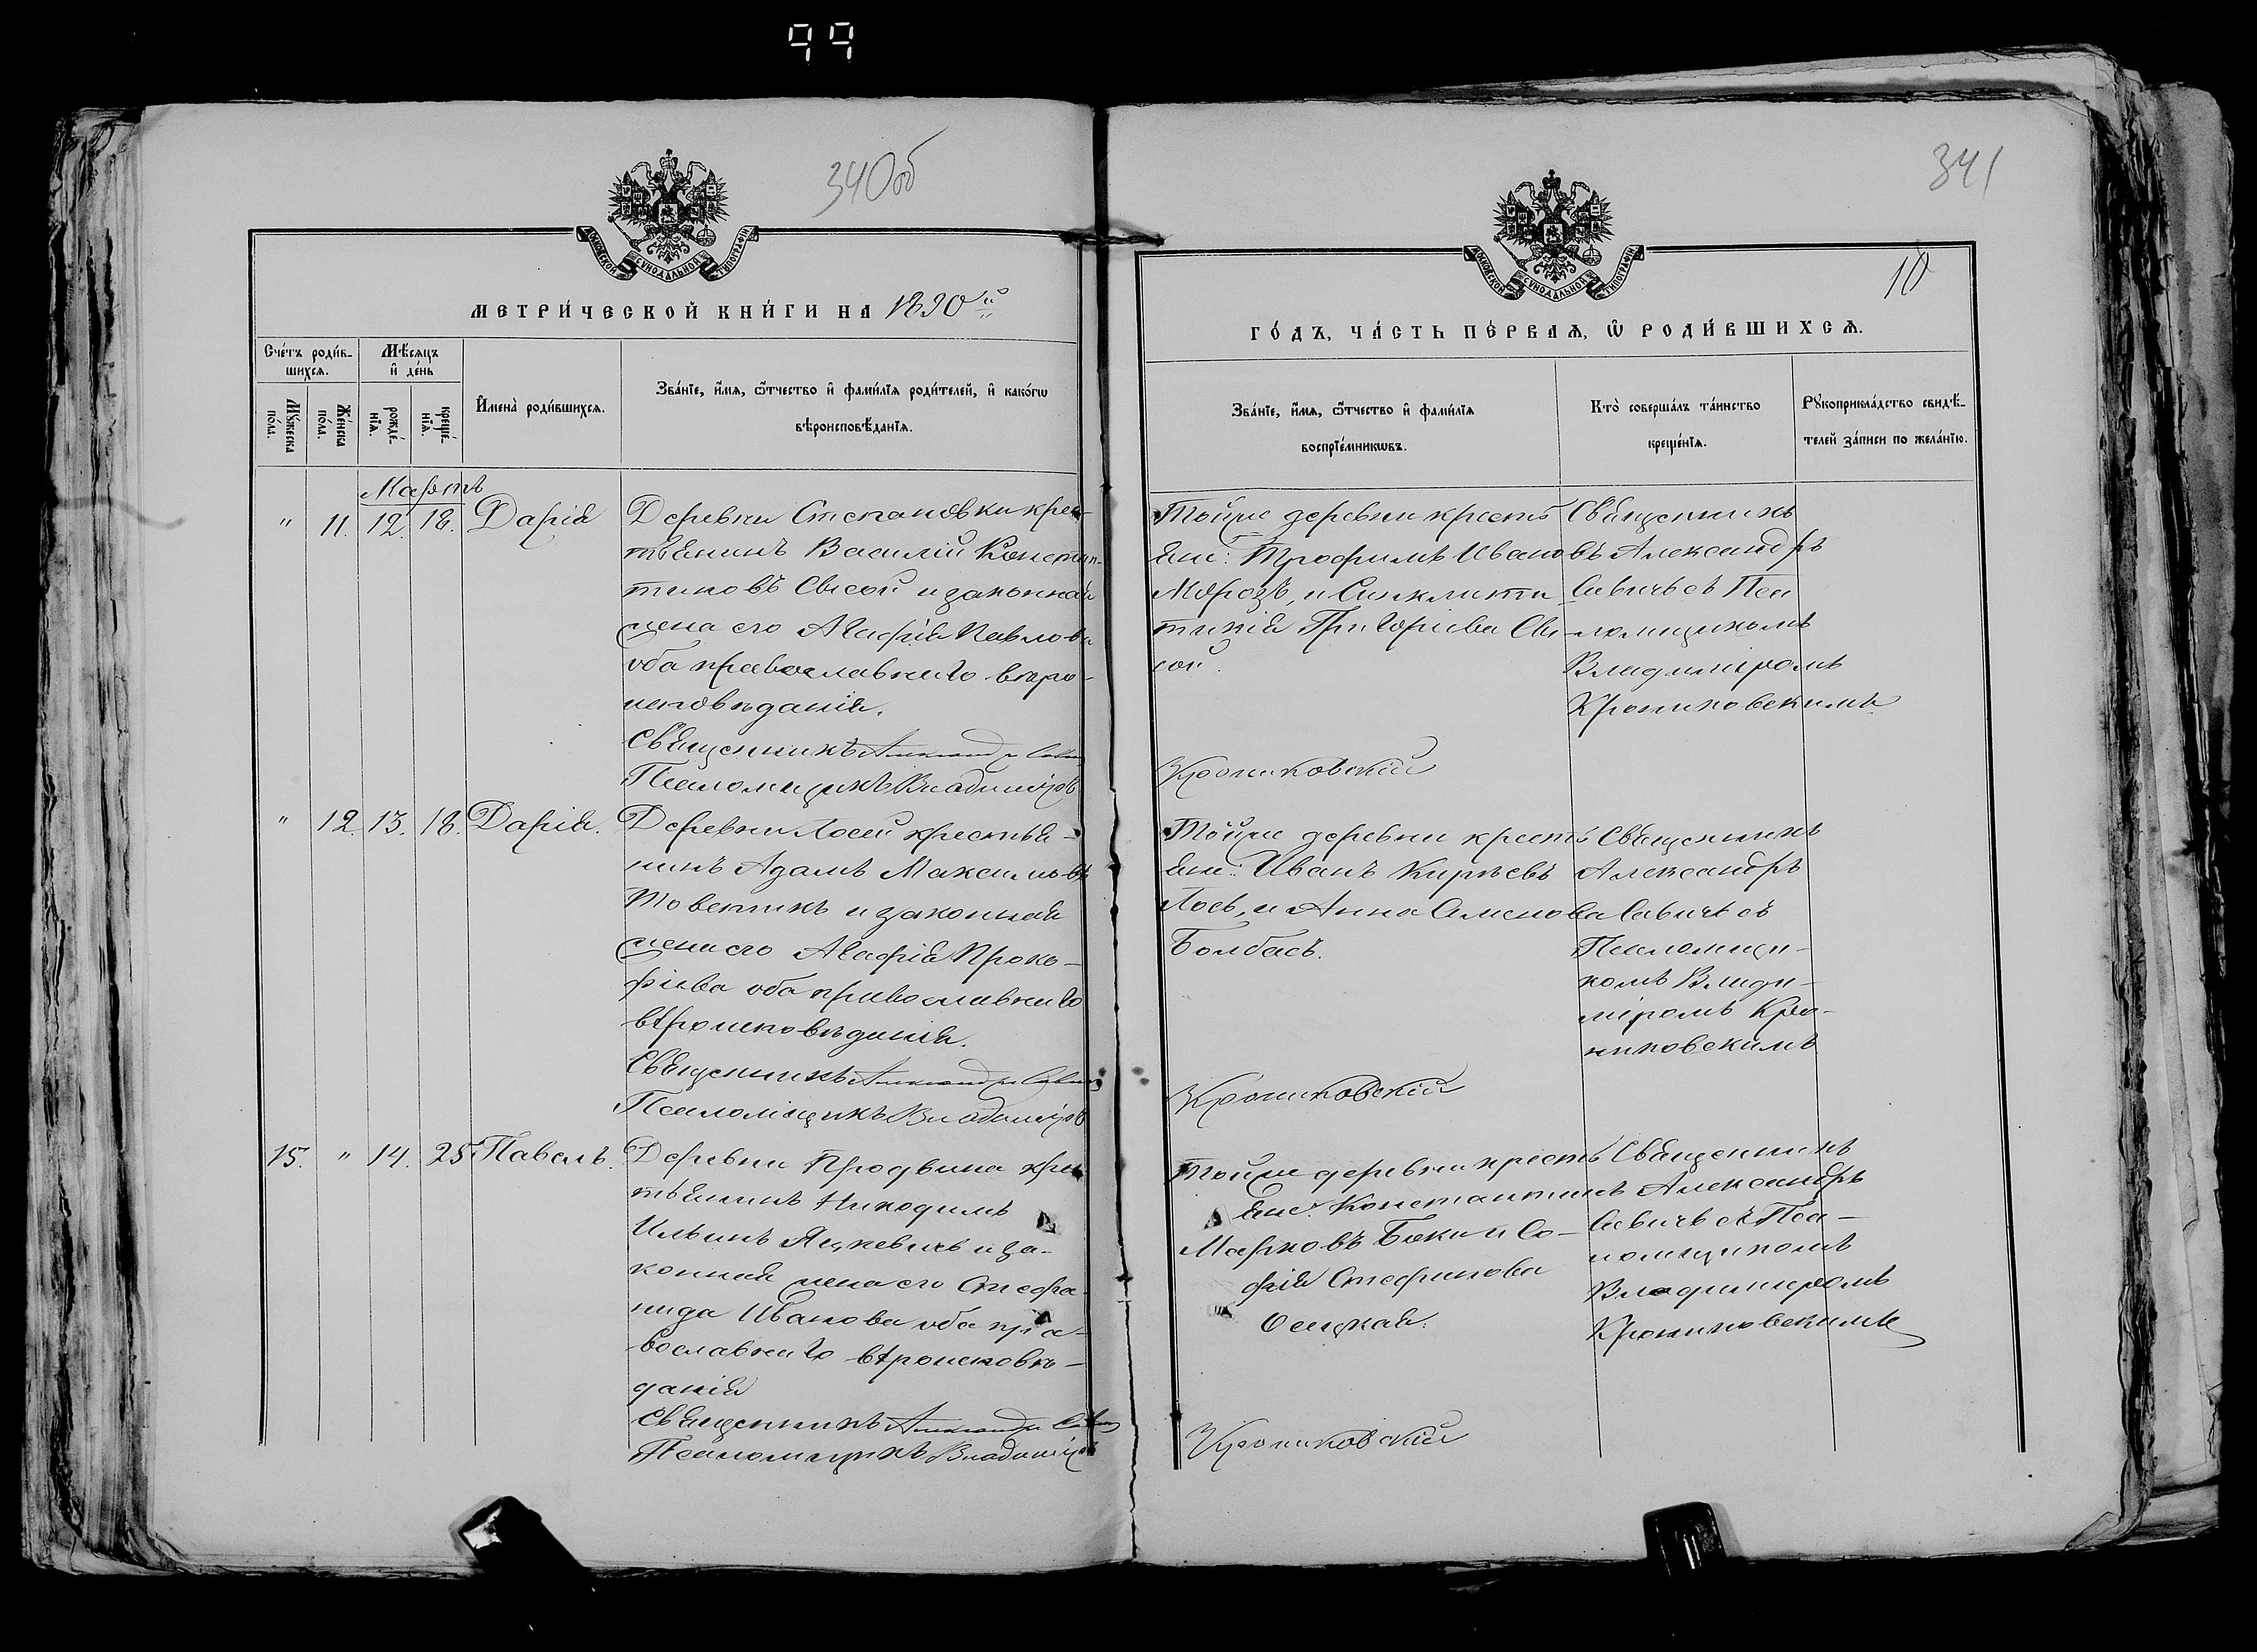 99
340об
МОСКОВСКОЙ СѴНОДАЛЬНОЙ ТИПОГРАФІИ
МЕТРИ́ЧЕСКОЙ КНИ́ГИ НА 1890й
Сче́тъ роди́в-
шихсѧ.
Мѣ́сѧцъ
и҆ де́нь
Мꙋ́жеска
по́ла.
Же́нска
по́ла.
рожде́-
нїѧ.
креще́-
нїѧ.
И҆мена̀ роди́вшихсѧ.
Зва́нїе, и҆́мѧ, ѻ҆́тчество и҆ фами́лїѧ роди́телей, и҆ како́гѡ
вѣроисповѣ́данїѧ.
Мартъ
" 11. 12. 18. Дарія
Деревни Степановки крес-
тьянинъ Василій Констан-
тиновъ Сысой и законная
жена его Агафія Павлова
оба православнаго вѣро-
исповѣданія.
Священникъ Александръ Савичъ
Псаломщикъ Владиміръ
" 12. 13. 18. Дарія.
Деревни Лосей крестья-
нинъ Адамъ Максимовъ
Товстикъ и законная
жена его Агафія Проко-
фіева оба православнаго
вѣроисповѣданія.
Священникъ Александръ Савичъ
Псаломщикъ Владиміръ
15. " 14. 25. Павелъ.
Деревни Продвина крес-
тьянинъ Никодимъ
Ильинъ Яцкевичъ и за-
конная жена его Стефа-
нида Иванова оба пра-
вославнаго вѣроисповѣ-
данія
Священникъ Александръ Савичъ
Псаломщикъ Владиміръ
341
10
МОСКОВСКОЙ СѴНОДАЛЬНОЙ ТИПОГРАФІИ
ГО́ДЪ, ЧА́СТЬ ПЕ́РВАѦ, Ѡ҆ РОДИ́ВШИХСѦ.
Зва́нїе, и҆́мѧ, ѻ҆́тчество и҆ фами́лїѧ
воспрїе́мникѡвъ.
Кто̀ соверша́лъ та́инство
креще́нїѧ.
Рꙋкоприкла́дство свидѣ́-
телей за́писи по жела́нїю.
Тойже деревни кресть
яне: Трофимъ Ивановъ
Морозъ, и Синклити-
тикія Григоріева Сы-
сой.
Священникъ
Александръ
Савичъ съ Пса
ломщикомъ
Владиміромъ
Крониковскимъ
Крониковскій
Тойже деревни кресть
яне: Иванъ Кирѣевъ
Лось, и Анна Семенова
Болбасъ.
Священникъ
Александръ
Савичъ съ
Псаломщи-
комъ Влади-
міромъ Кро-
никовскимъ
Крониковскій
Тойже деревни кресть
яне: Константинъ
Марковъ Бокій и Со-
фія Стефанова
Осицкая.
Священникъ
Александръ
Савичъ съ Пса-
ломщикомъ
Владиміромъ
Крониковскимъ
Крониковскій